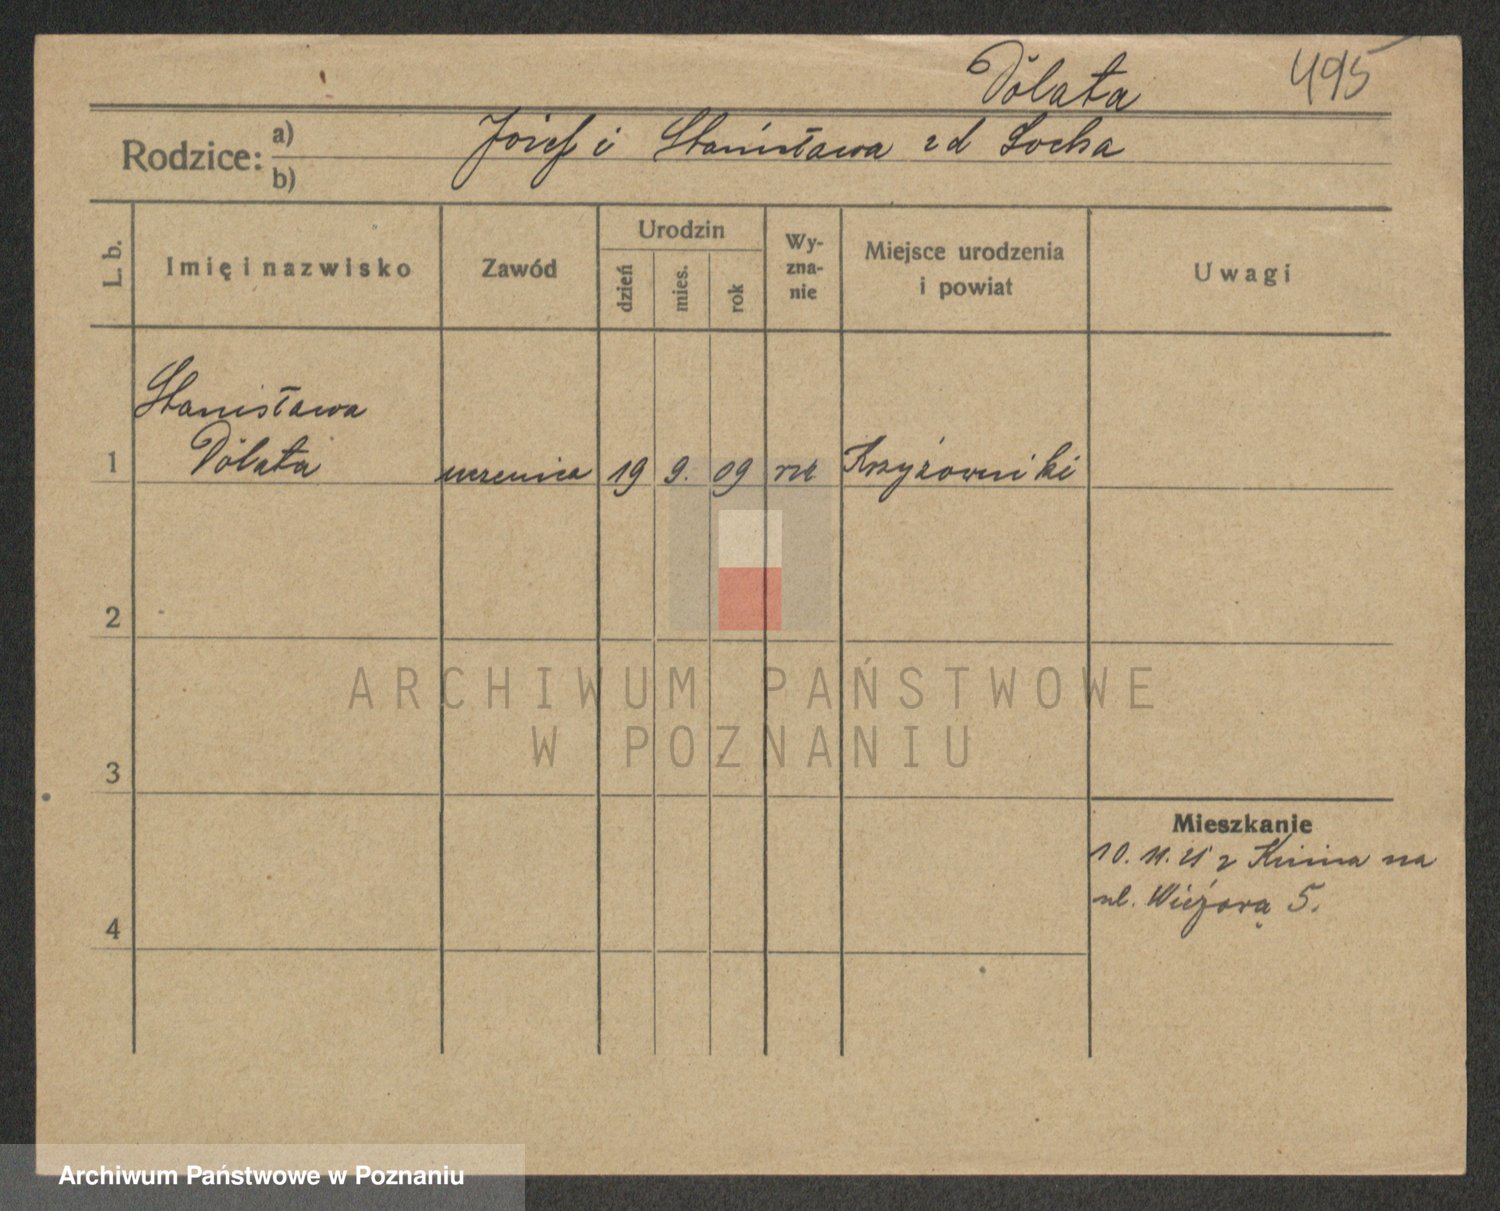 Dolata
495
Rodzice: a)
b)
Józef i Stanisława z d Socha
L. b.
Imię i nazwisko
Zawód
Urodzin
dzień
mies.
rok
Wy-
zna-
nie
Miejsce urodzenia
i powiat
Uwagi
Stanisława
1 Dolata uczenica 19 9. 09 rzk Krzyżowniki
2
3
4
ARCHIWUM PAŃSTWOWE
W POZNANIU
Mieszkanie
10. 11. 25 z na
ul. 5.
Archiwum Państwowe w Poznaniu